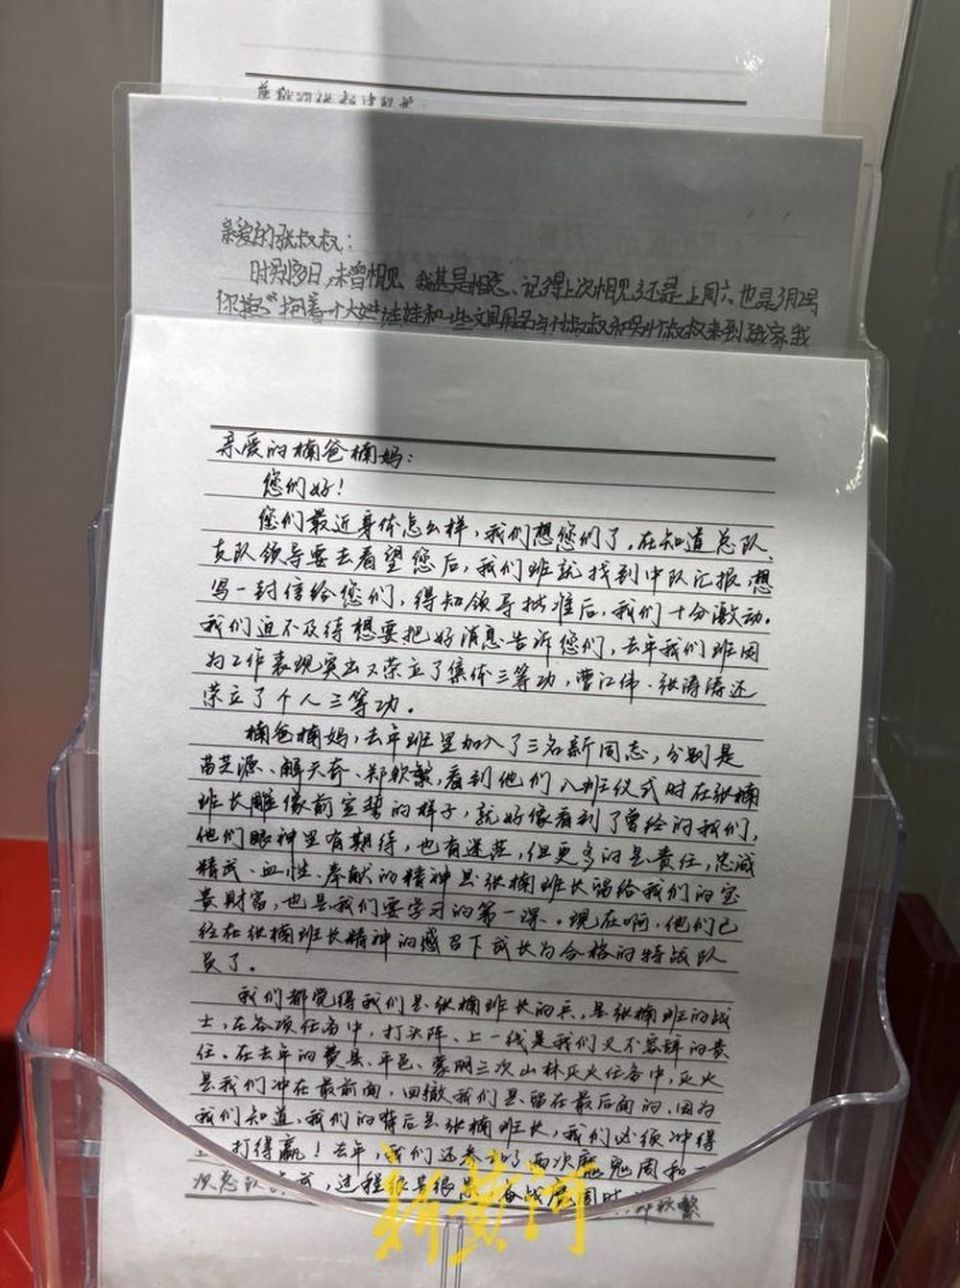 亲爱的张叔叔：
时别多日，未曾相见，我甚是想念、记得上次相见还是上周六也是3月2号
你抱着一个大娃娃和一些文具用品与叔叔和叔叔来到我家我
亲爱的楠爸楠妈：
您们好！
您们最近身体怎么样，我们想您们了。在知道总队、
支队领导要去看望您后，我们班就找到中队汇报，想
写一封信给您们，得知领导批准后，我们十分激动。
我们迫不及待想要把好消息告诉您们，去年我们班因
为工作表现突出又荣立了集体三等功，曹江伟、张涛涛还
荣立了个人三等功。
楠爸楠妈，去年班里加入了三名新同志，分别是
苗芝源、解天奇、郑软繁，看到他们入班仪式时在张楠
班长雕像前宣誓的样子，就好像看到了曾经的我们，
他们眼神里有期待，也有迷茫，但更多的是责任，忠诚
精武、血性、奉献的精神是张楠班长留给我们的宝
贵财富，也是我们要学习的第一课。现在啊，他们已
经在张楠班长精神的感召下成长为合格的特战队
员了。
我们都觉得我们是张楠班长的兵，是张楠班的战
士，在各项任务中，打头阵、上一线是我们义不容辞的责
任。在去年的费县、平邑、蒙阴三次山林灭火任务中，灭火
是我们冲在最前面，回撤我们是留在最后面的，因为
我们知道，我们的背后是张楠班长，我们必须冲得
上打得赢！去年，我们还参加了两次魔鬼周和一
次总队比武，过程很苦很累，备战魔鬼周时
新黄河